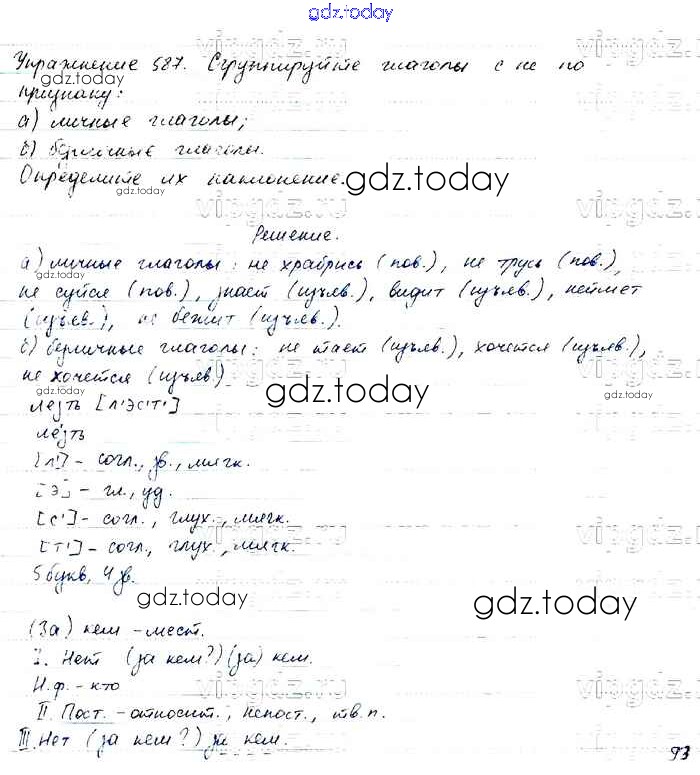 gdz.today
Упражнение 587. Сгруппируйте глаголы с не по
признаку:
а) личные глаголы;
б) безличные глаголы.
Определите их наклонение.
Решение.
а) личные глаголы: не храбрись (пов.), не трусь (пов.),
не суйся (пов.), знает (изъяв.), видит (изъяв.), неймет
(изъяв.), не бежит (изъяв.).
б) безличные глаголы: не тает (изъяв.), хочется (изъяв.),
не хочется (изъяв.)
лезть [л'эс'т']
лезть
[л'] - согл., зв., мягк.
[э] - гл., уд.
[с'] - согл., глух., мягк.
[т'] - согл., глух., мягк.
5 букв, 4 зв.
(За) кем - мест.
I. Нет (за кем?) (за) кем.
Н.ф. - кто
II. Пост. - относит., непост., тв.п.
III. Нет (за кем?) за кем.
93